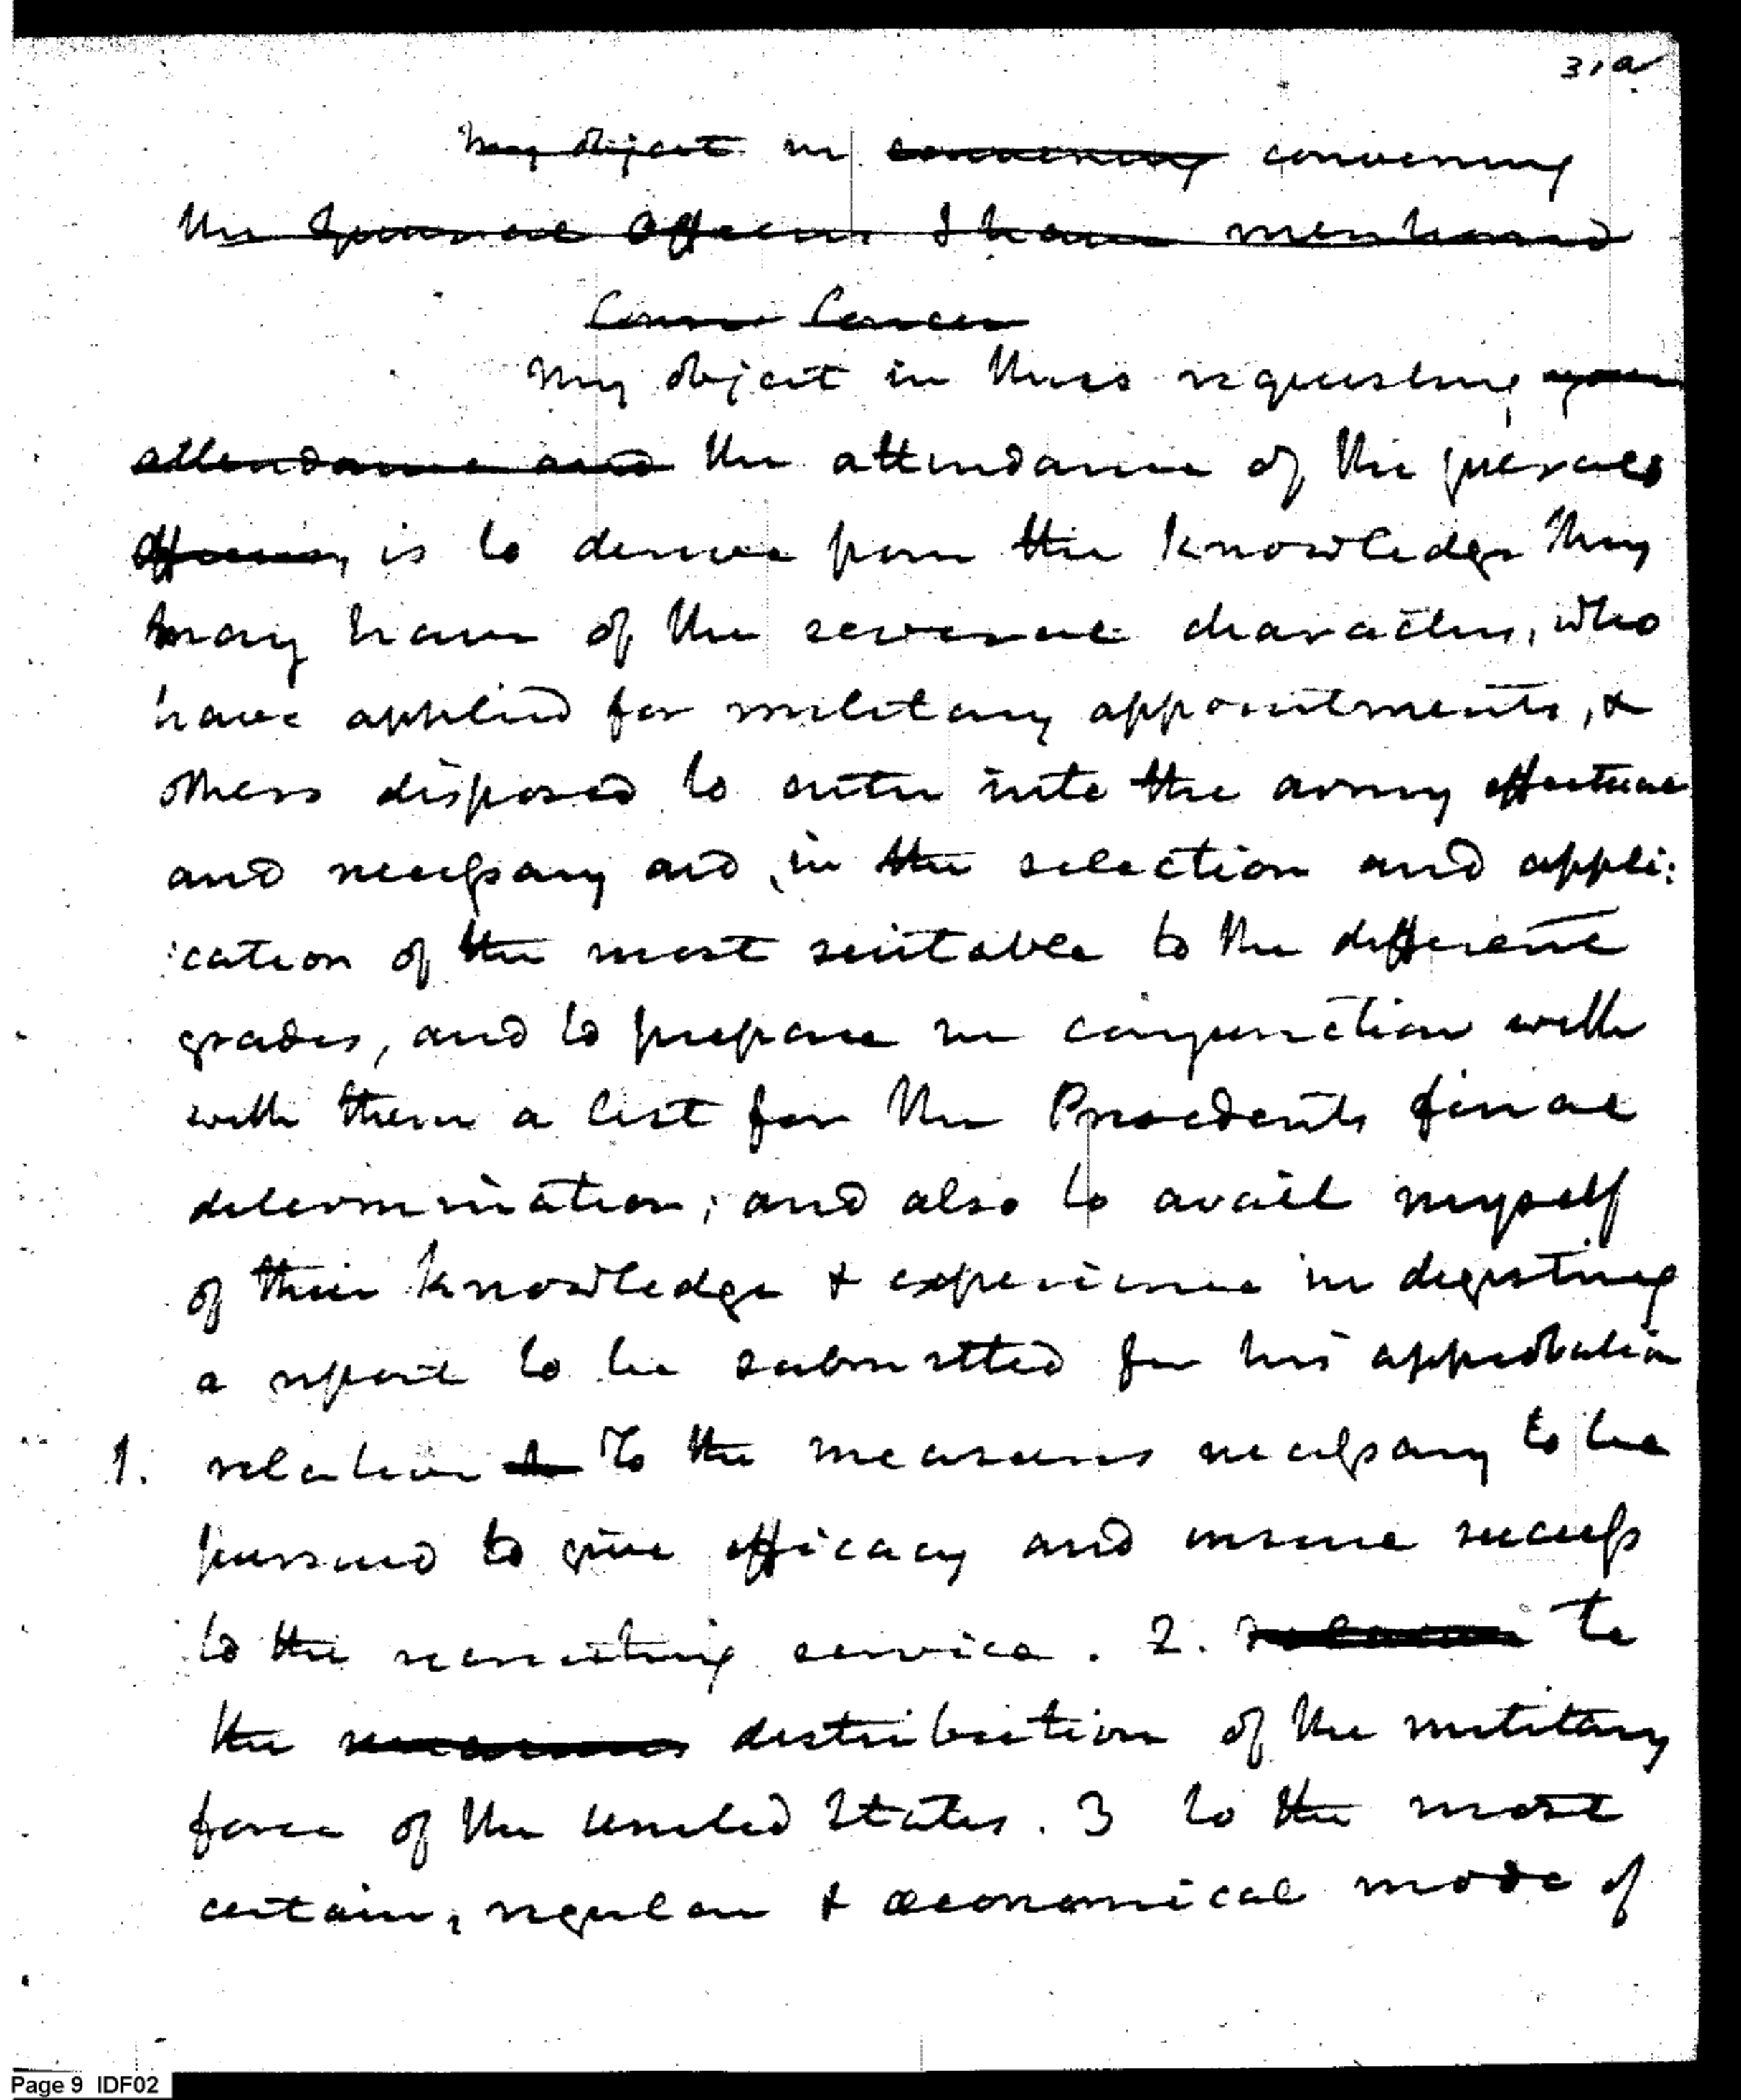 31a
My object in convening convening
the General Officers I have mentioned
My object in thus requesting your
attendance and the attendance of the generals
Officers, is to derive from the knowledge they
may have of the several characters, who
have applied for military appointments, &
others disposed to enter into the army effectual
and necessary aid, in the selection and appli:
:cation of the most suitable to the different
grades, and to prepare in conjunction with
with them a list for the Presidents final
determination; and also to avail myself
of their knowledge & experience in digesting
a report to be submitted for his approbation
1. relative to To the measures necessary to be
pursued to give efficacy and insure success
to the recruiting service. 2. relative to
the measures distribution of the military
force of the United States. 3 to the most
certain, regular & œconomical mode of
Page 9 IDF02